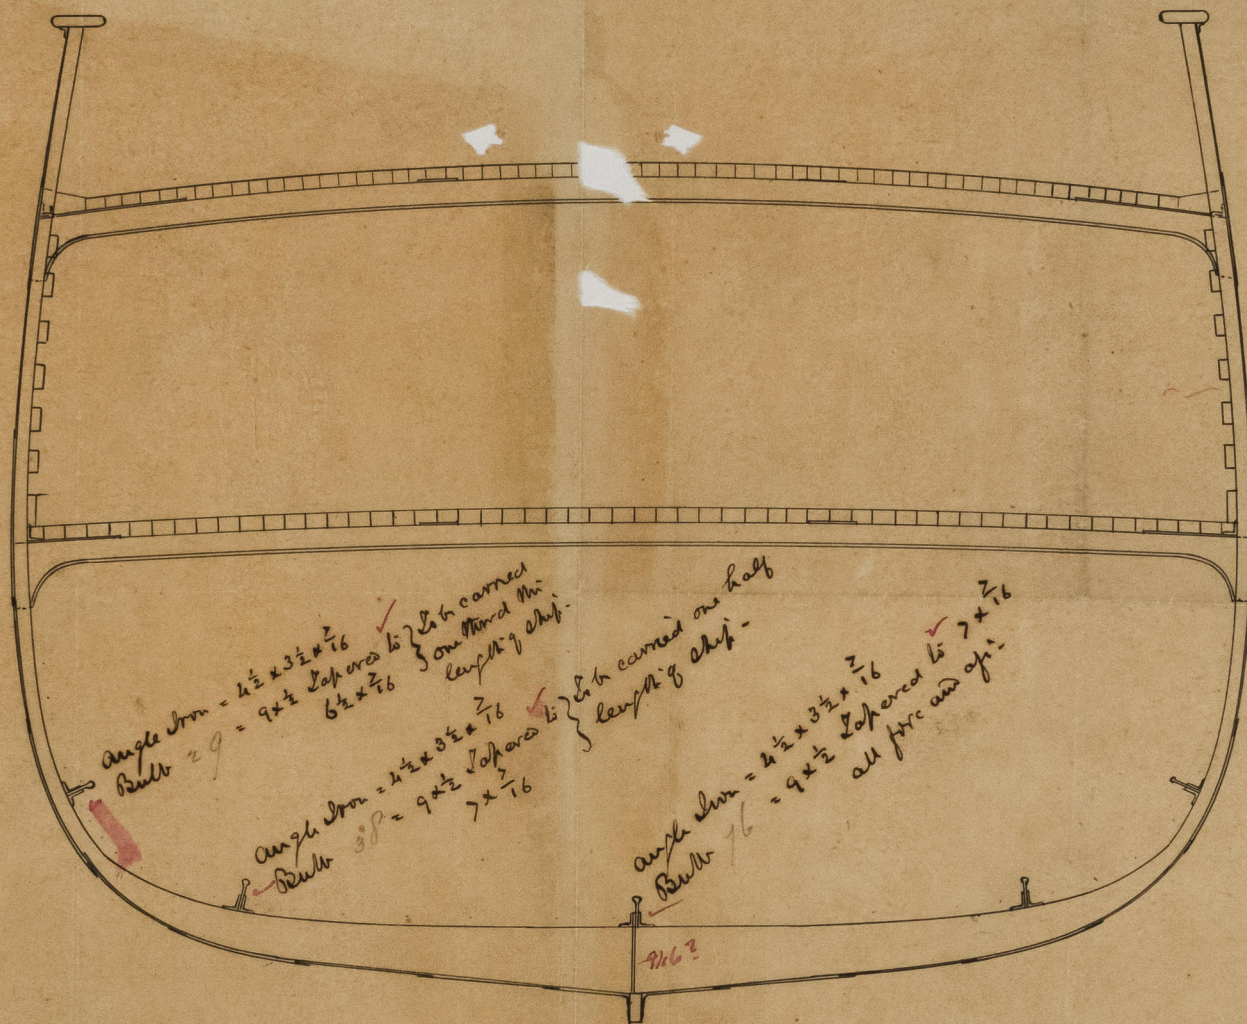 Angle Iron = 4½ × 3½ × 7/16
Bulb = 9 = 9 × ½ Tapered to
6½ × 7/16
To be carried
one third the
length of ship.
Angle Iron = 4½ × 3½ × 7/16
Bulb 38 = 9 × ½ Tapered to
7 × 7/16
To be carried one half
length of ship.
Angle Iron = 4½ × 3½ × 7/16
Bulb 76 = 9 × ½ Tapered to 7 × 7/16
all fore and aft.